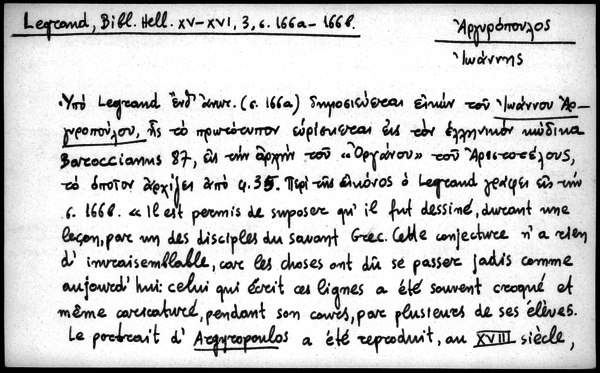 Legrand, Bibl. Hell. XV–XVI, 3, σ. 166a – 166b.
Ἀργυρόπουλος
Ἰωάννης
Ὑπὸ Legrand ἔνθ' ἀνωτ. (σ. 166a) δημοσιεύεται εἰκὼν τοῦ Ἰωάννου Ἀρ-
γυροπούλου, ἧς τὸ πρωτότυπον εὑρίσκεται εἰς τὸν ἑλληνικὸν κώδικα
Baroccianus 87, εἰς τὴν ἀρχὴν τοῦ «Ὀργάνου» τοῦ Ἀριστοτέλους,
τὸ ὁποῖον ἀρχίζει ἀπὸ φ. 35. Περὶ τῆς εἰκόνος ὁ Legrand γράφει εἰς τὴν
σ. 166b. « Il est permis de suposer qu' il fut dessiné, durant une
leçon, par un des disciples du savant Grec. Cette conjecture n' a rien
d' invraisemblable, car les choses ont dû se passer jadis comme
aujourd' hui: celui qui écrit ces lignes a été souvent croqué et
même caricaturé, pendant son cours, par plusieurs de ses élèves.
Le portrait d' Argyropoulos a été reproduit, au XVIII siècle,